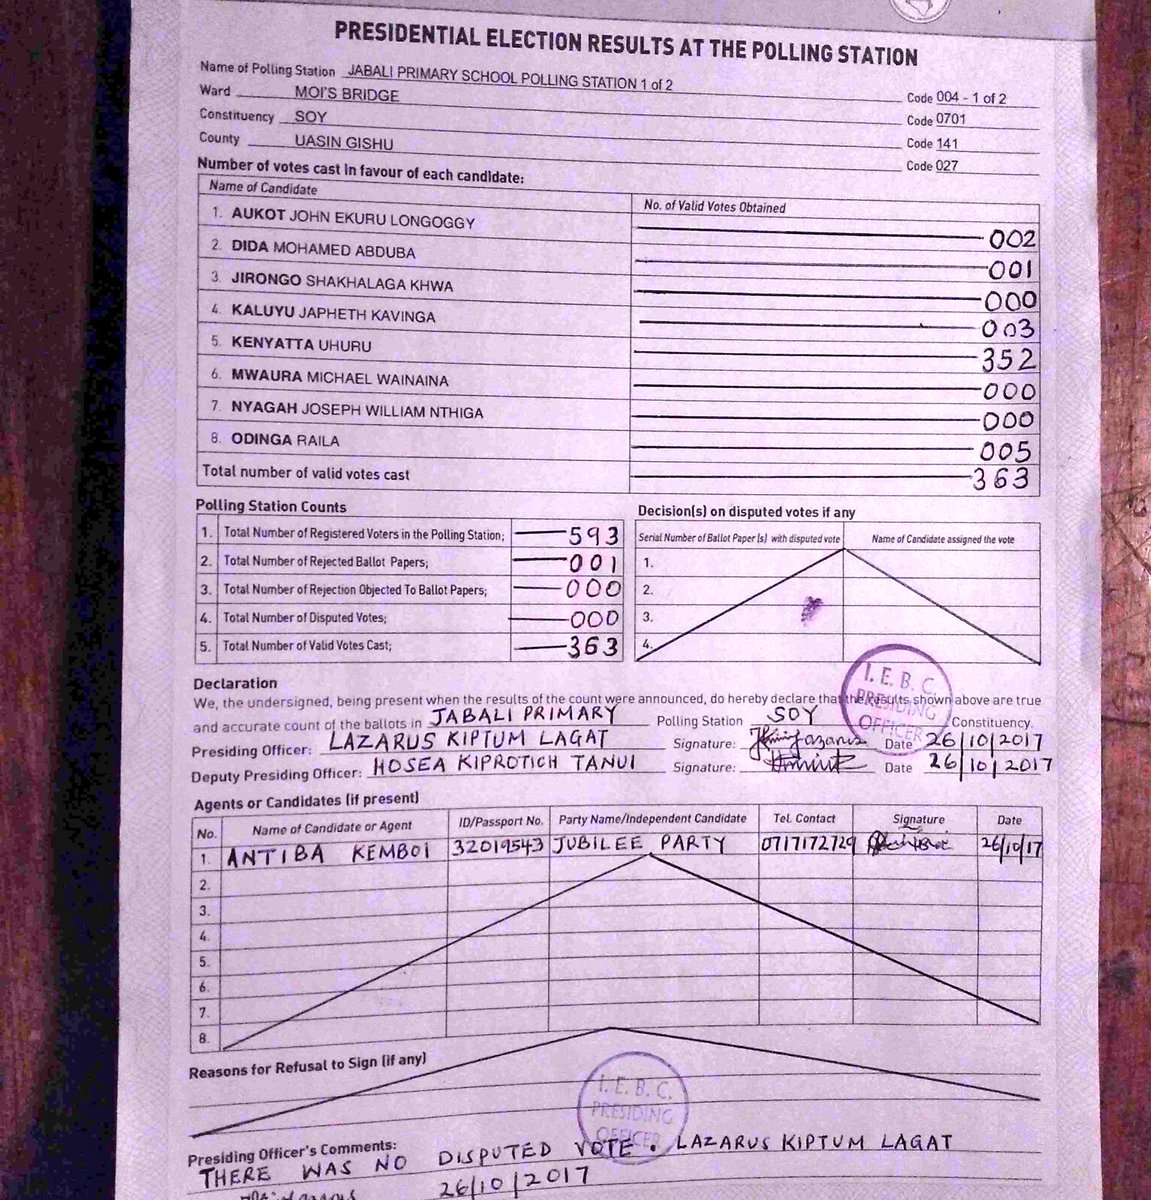 PRESIDENTIAL ELECTION RESULTS AT THE POLLING STATION
Name of Polling Station JABALI PRIMARY SCHOOL POLLING STATION 1 of 2 Code 004 - 1 of 2
Ward MOI'S BRIDGE Code 0701
Constituency SOY Code 141
County UASIN GISHU Code 027
Number of votes cast in favour of each candidate:
Name of Candidate No. of Valid Votes Obtained
1. AUKOT JOHN EKURU LONGOGGY 002
2. DIDA MOHAMED ABDUBA 001
3. JIRONGO SHAKHALAGA KHWA 000
4. KALUYU JAPHETH KAVINGA 003
5. KENYATTA UHURU 352
6. MWAURA MICHAEL WAINAINA 000
7. NYAGAH JOSEPH WILLIAM NTHIGA 000
8. ODINGA RAILA 005
Total number of valid votes cast 363
Polling Station Counts
1. Total Number of Registered Voters in the Polling Station; 593
2. Total Number of Rejected Ballot Papers; 001
3. Total Number of Rejection Objected To Ballot Papers; 000
4. Total Number of Disputed Votes; 000
5. Total Number of Valid Votes Cast; 363
Decision(s) on disputed votes if any
Serial Number of Ballot Paper (s) with disputed vote Name of Candidate assigned the vote
1.
2.
3.
4.
I. E. B. C.
PRESIDING
OFFICER
Declaration
We, the undersigned, being present when the results of the count were announced, do hereby declare that the results shown above are true
and accurate count of the ballots in JABALI PRIMARY Polling Station SOY Constituency.
Presiding Officer: LAZARUS KIPTUM LAGAT Signature: Date 26/10/2017
Deputy Presiding Officer: HOSEA KIPROTICH TANUI Signature: Date 26/10/2017
Agents or Candidates (if present)
No. Name of Candidate or Agent ID/Passport No. Party Name/Independent Candidate Tel. Contact Signature Date
1. ANTIBA KEMBOI 32019543 JUBILEE PARTY 0717172729 26/10/17
2.
3.
4.
5.
6.
7.
8.
Reasons for Refusal to Sign (if any)
I. E. B. C.
PRESIDING
OFFICER
Presiding Officer's Comments:
THERE WAS NO DISPUTED VOTE. LAZARUS KIPTUM LAGAT
26/10/2017